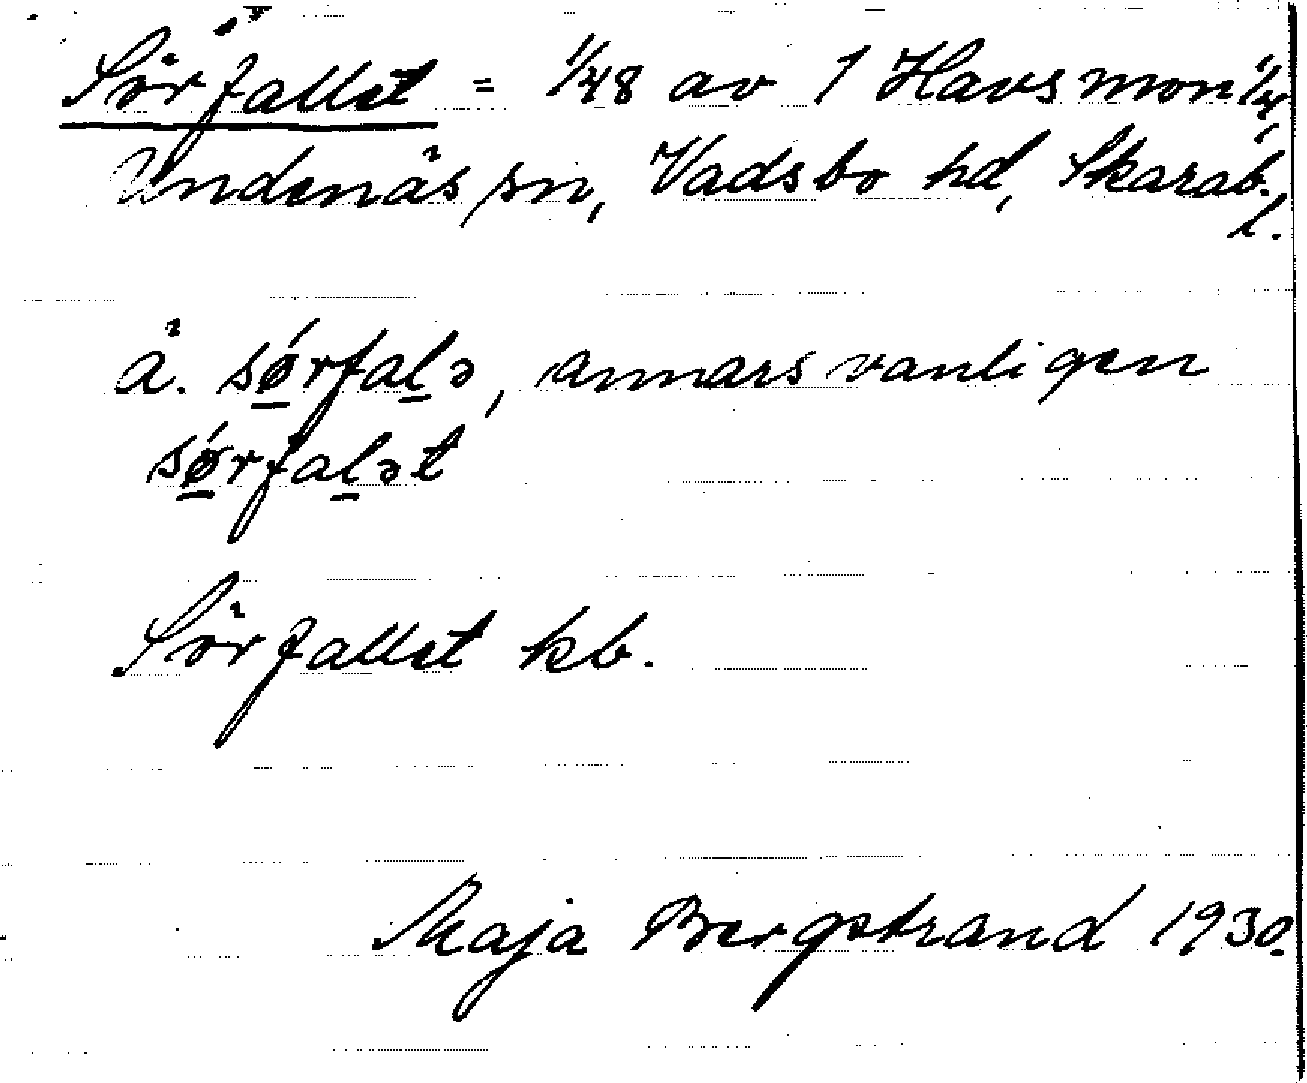 Sörfallet = 1/48 av 1 Havsmon 1/4,
Undenäs sn, Vadsbo hd, Skarab.
l.
ä. sǿrfalə, annars vanligen
sǿrfalət
Sörfallet kb.
Maja Bergstrand 1930.